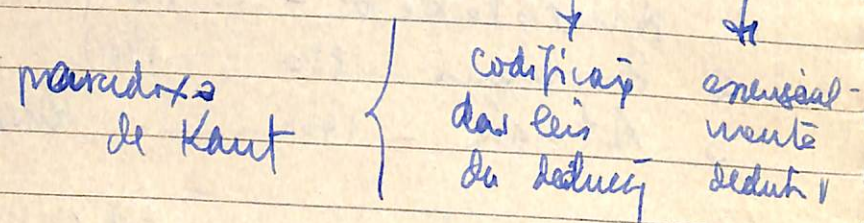 paradoxo
de Kant
codificação
das leis
da dedução
essencial-
mente
dedutiv